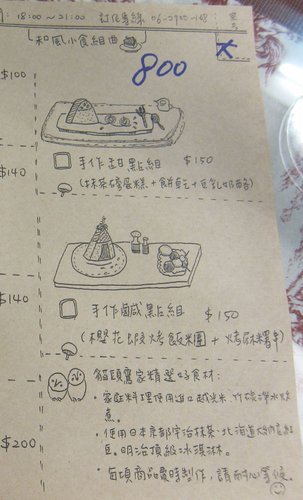 間: 18:00~21:00 訂位專線 06-2900-168
和風小食組曲
800
$100
$140
手作甜點組 $150
(抹茶磚蛋糕+餅乾+豆乳奶酪)
$140
手作鹹點組 $150
(櫻花蝦烤飯糰+烤麻糬串)
貓頭鷹家精選好食材:
・家庭料理使用進口越光米 竹碳淨水炊煮。
・使用日本京都宇治抹茶、北海道紅豆、明治頂級冰淇淋。
$200
・每項商品處時製作,請耐心等候。